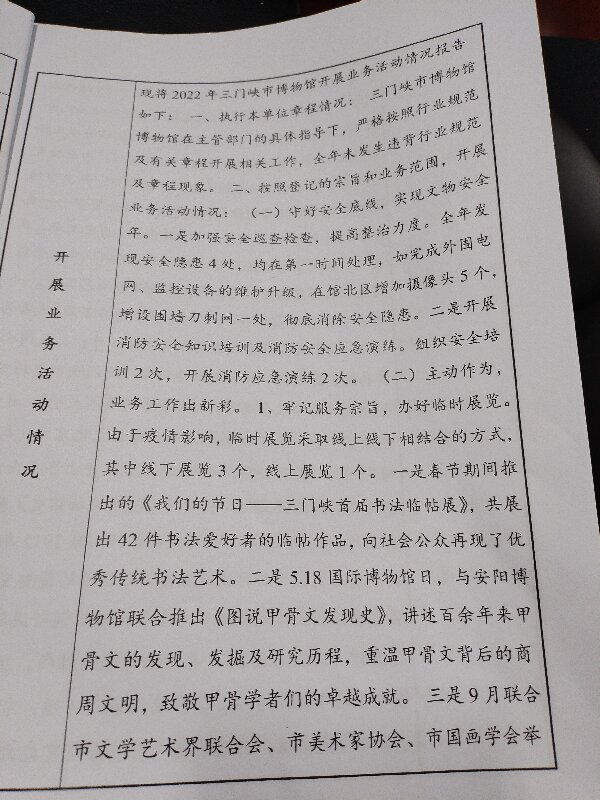 开展业务活动情况
现将 2022 年三门峡市博物馆开展业务活动情况报告
如下： 一、执行本单位章程情况： 三门峡市博物馆
博物馆在主管部门的具体指导下，严格按照行业规范
及有关章程开展相关工作，全年未发生违背行业规范
及章程现象。 二、按照登记的宗旨和业务范围，开展
业务活动情况： （一）守好安全底线，实现文物安全
年。一是加强安全巡查检查，提高整治力度。全年发
现安全隐患 4 处，均在第一时间处理，如完成外围电
网、监控设备的维护升级，在馆北区增加摄像头 5 个，
增设围墙刀刺网一处，彻底消除安全隐患。二是开展
消防安全知识培训及消防安全应急演练。组织安全培
训 2 次，开展消防应急演练 2 次。 （二）主动作为，
业务工作出新彩。 1、牢记服务宗旨，办好临时展览。
由于疫情影响，临时展览采取线上线下相结合的方式，
其中线下展览 3 个，线上展览 1 个。 一是春节期间推
出的《我们的节日——三门峡首届书法临帖展》，共展
出 42 件书法爱好者的临帖作品，向社会公众再现了优
秀传统书法艺术。二是 5.18 国际博物馆日，与安阳博
物馆联合推出《图说甲骨文发现史》，讲述百余年来甲
骨文的发现、发掘及研究历程，重温甲骨文背后的商
周文明，致敬甲骨学者们的卓越成就。 三是 9 月联合
市文学艺术界联合会、市美术家协会、市国画学会举